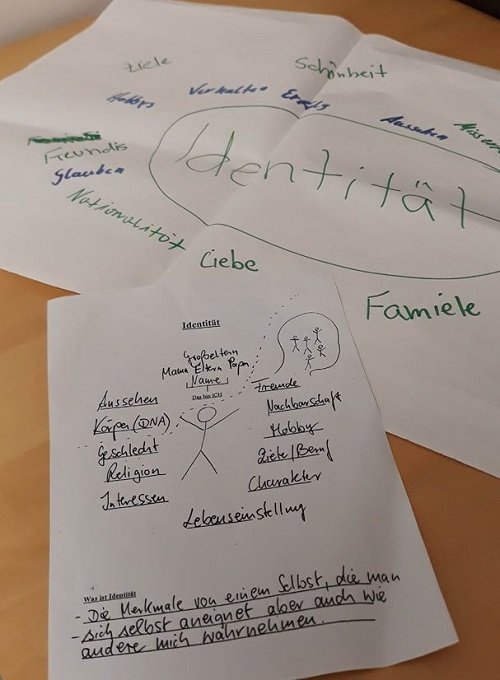 Ziele
Schönheit
Hobbys
Verhalten
Aussehen
Freundis
Glauben
Identität
Nationalität
Liebe
Famiele
Identität
Großeltern
Mama Eltern Papa
Name
Das bin ICH
Aussehen
Körper (DNA)
Geschlecht
Religion
Interessen
Freunde
Nachbarschaft
Hobby
Ziele/Beruf
Charakter
Lebenseinstellung
Was ist Identität
- Die Merkmale von einem Selbst, die man
- sich selbst aneignet aber auch wie
andere mich wahrnehmen.